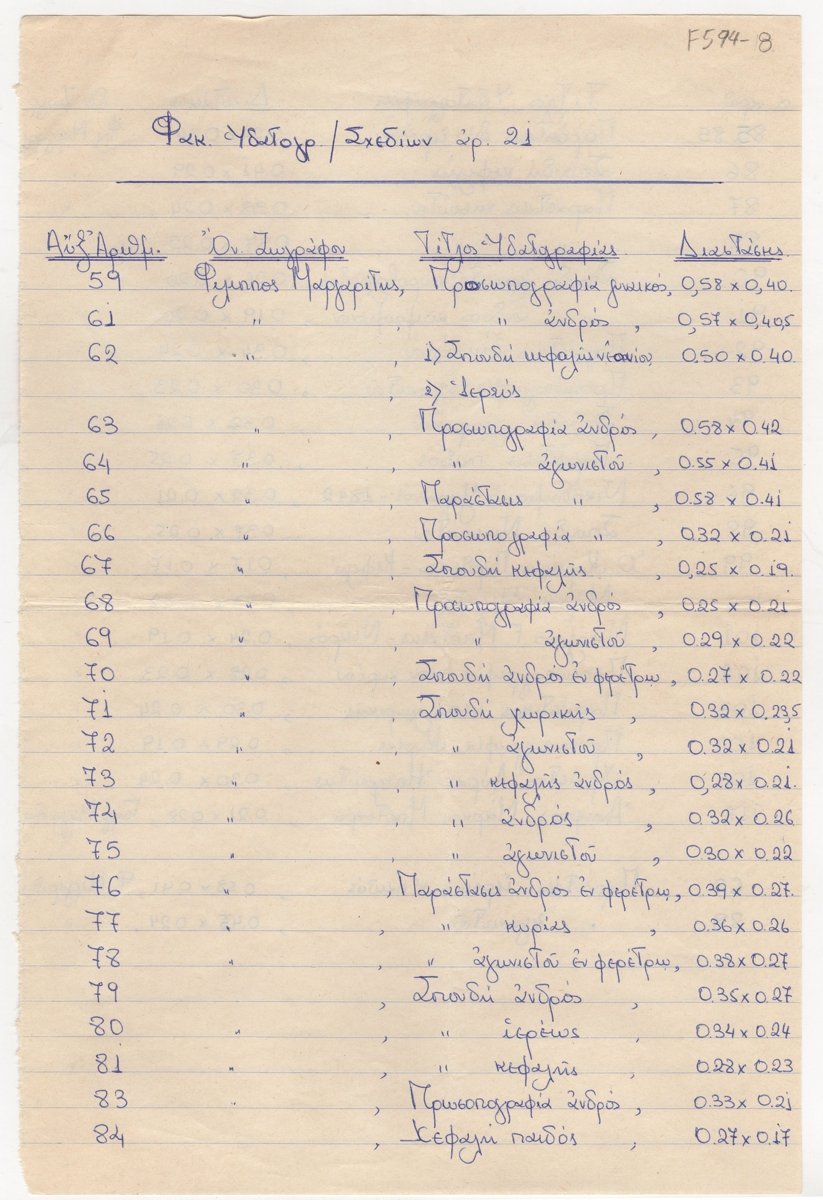 F594-8
Φακ. Ὑδατογρ./Σχεδίων ἀρ. 21
Αὔξ. Ἀριθμ. Ὄν. Ζωγράφου Τίτλος Ὑδατογραφίας Διαστάσεις
59 Φίλιππος Μαργαρίτης, Προσωπογραφία γυναικός, 0,58 x 0,40.
61 " , " ἀνδρός , 0,57 x 0,405
62 " , 1) Σπουδή κεφαλῆς νεανίου, 0.50 x 0.40
, 2) Ἱερεύς
63 " , Προσωπογραφία ἀνδρός , 0.58 x 0.42
64 " , " ἀγωνιστοῦ , 0.55 x 0.41
65 " , Παράστασις " , 0.58 x 0.41
66 " , Προσωπογραφία " , 0.32 x 0.21
67 " , Σπουδή κεφαλῆς , 0,25 x 0.19.
68 " , Προσωπογραφία ἀνδρός , 0.25 x 0.21
69 " , " ἀγωνιστοῦ , 0.29 x 0.22
70 " , Σπουδή ἀνδρός ἐν φερέτρῳ , 0.27 x 0.22
71 " , Σπουδή χωρικῆς , 0.32 x 0.23,5
72 " , " ἀγωνιστοῦ , 0.32 x 0.21
73 " , " κεφαλῆς ἀνδρός , 0,28 x 0.21.
74 " , " ἀνδρός , 0.32 x 0.26
75 " , " ἀγωνιστοῦ , 0.30 x 0.22
76 " , Παράστασις ἀνδρός ἐν φερέτρῳ , 0.39 x 0.27.
77 " , " κυρίας , 0.36 x 0.26
78 " , " ἀγωνιστοῦ ἐν φερέτρῳ , 0.38 x 0.27
79 , Σπουδή ἀνδρός , 0.35 x 0.27
80 " , " ἱερέως , 0.34 x 0.24
81 " , " κεφαλῆς , 0.28 x 0.23
83 " , Πρωσοπογραφία ἀνδρός , 0.33 x 0.21
84 , Κεφαλή παιδός , 0.27 x 0.17